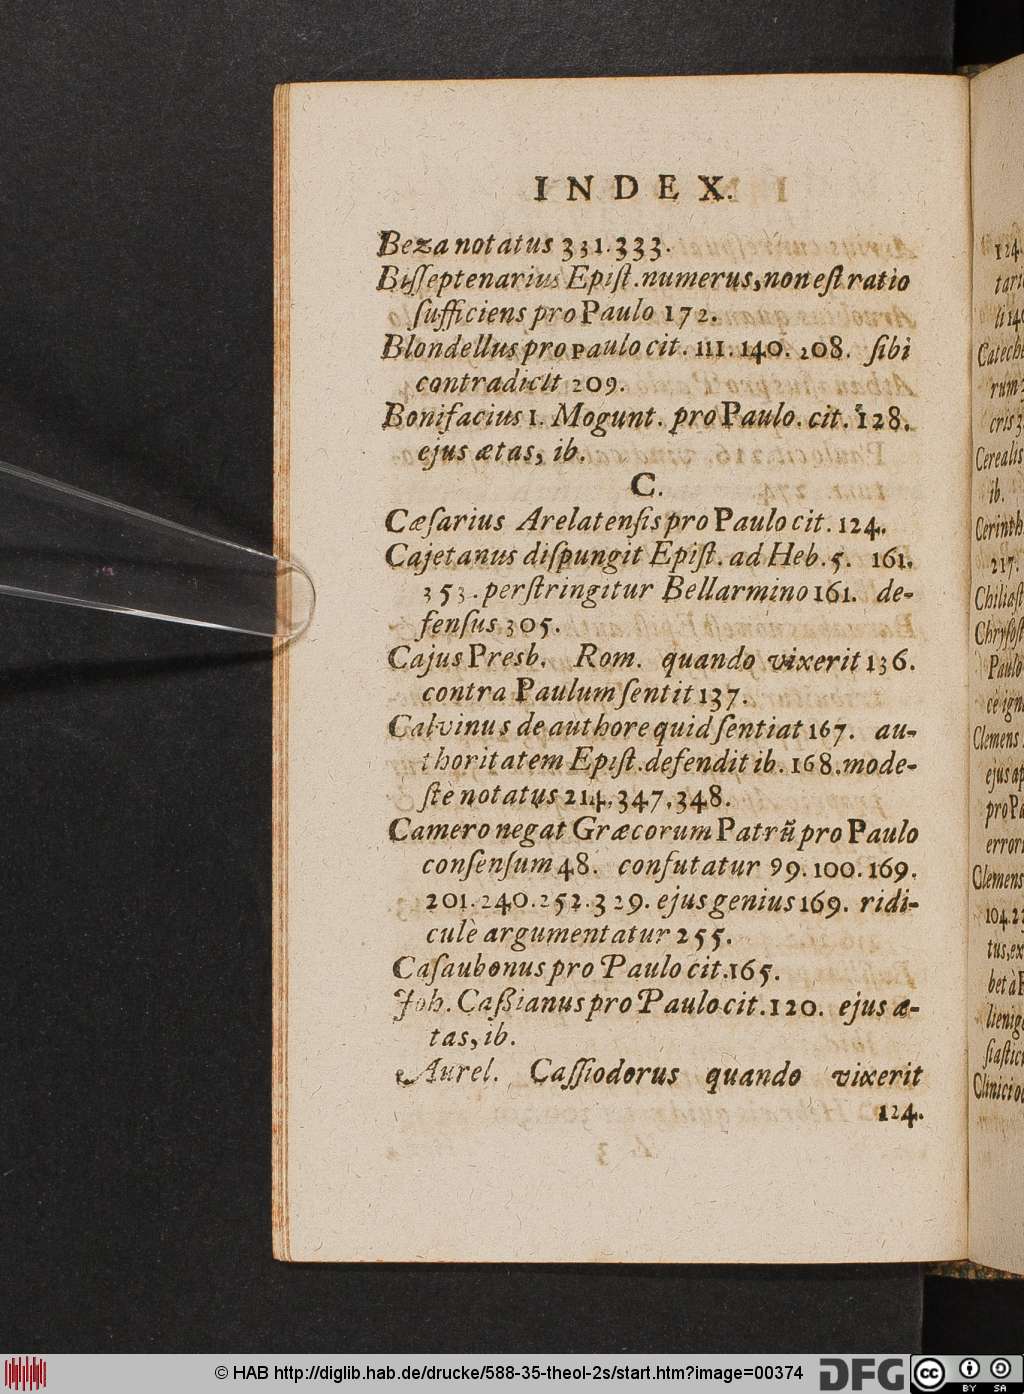 INDEX.
Beza notatus 331.333.
Biſſeptenarius Epiſt. numerus, non eſt ratio
ſufficiens pro Paulo 172.
Blondellus pro Paulo cit. 111. 140. 208. ſibi
contradicit 209.
Bonifacius 1. Mogunt. pro Paulo. cit. 128.
ejus ætas, ib.
C.
Cæſarius Arelatenſis pro Paulo cit. 124.
Cajetanus diſpungit Epiſt. ad Heb. 5. 161.
353. perſtringitur Bellarmino 161. de-
fenſus 305.
Cajus Presb. Rom. quando vixerit 136.
contra Paulum ſentit 137.
Calvinus de authore quid ſentiat 167. au-
thoritatem Epiſt. defendit ib. 168. mode-
ſtè notatus 214, 347, 348.
Camero negat Græcorum Patrũ pro Paulo
conſenſum 48. confutatur 99. 100. 169.
201. 240. 252. 329. ejus genius 169. ridi-
culè argumentatur 255.
Caſaubonus pro Paulo cit. 165.
Joh. Caßianus pro Paulo cit. 120. ejus æ-
tas, ib.
Aurel. Caſſiodorus quando vixerit
124.
124.
li 140
Cerealis
ib.
Cerinth
217.
Chiliaſt
Chryſoſt
Paulo
Clemens
ejus
pro
errori
Clemens
tus, ex
bet à
lienig
ſiaſtic
Clinici
© HAB http://diglib.hab.de/drucke/588-35-theol-2s/start.htm?image=00374
DFG
cc BY SA